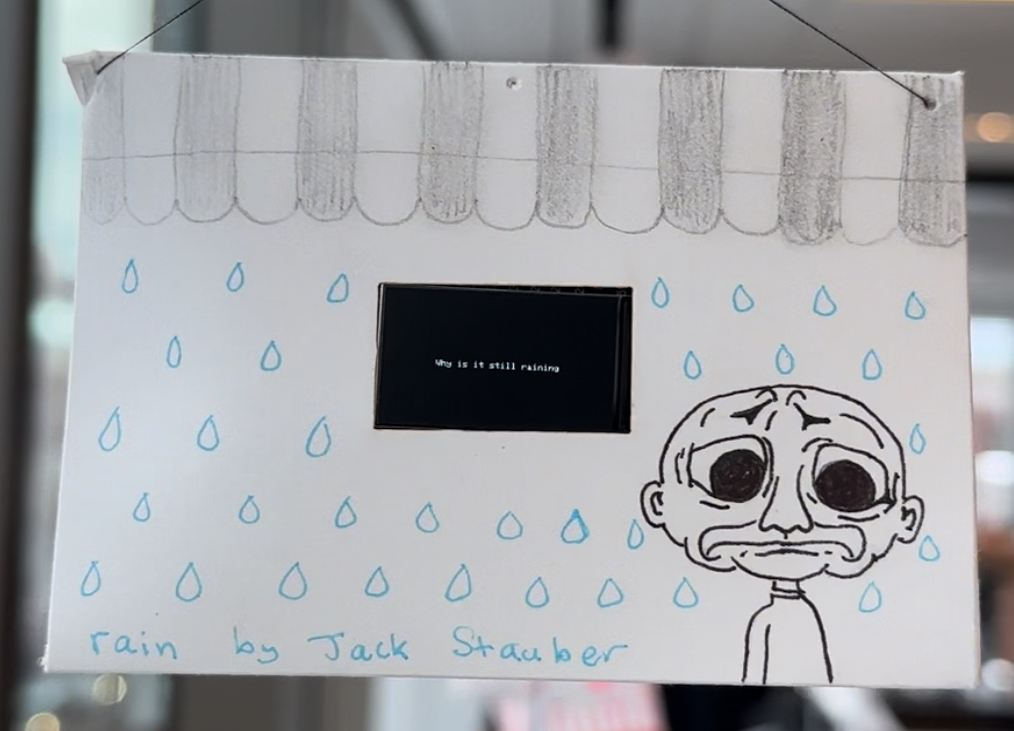 Why is it still raining
rain by Jack Stauber